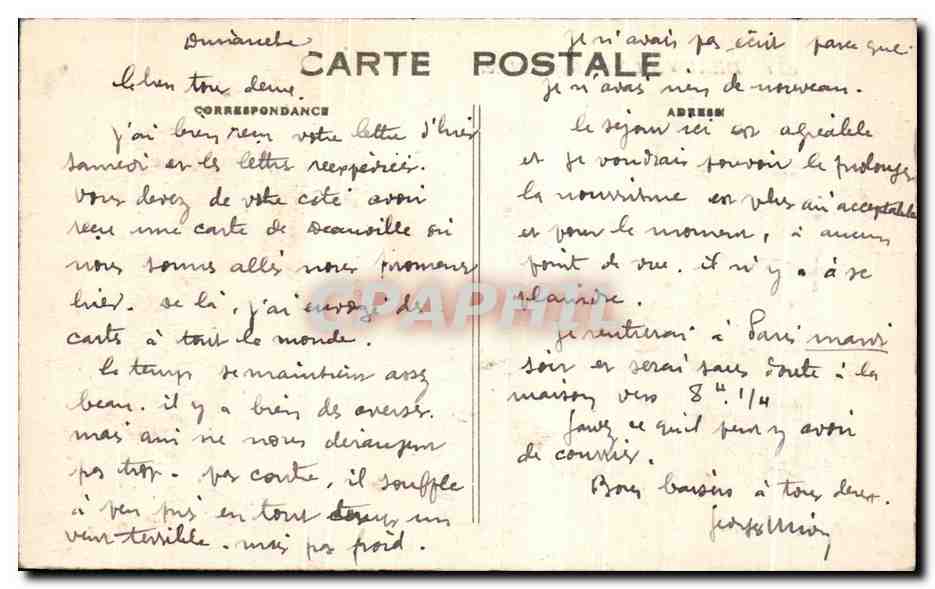 CARTE POSTALE
CORRESPONDANCE
Dimanche
tous deux.
J'ai bien reçu votre lettre d'hier
samedi et les lettres réexpédiées.
Vous devez de votre côté avoir
reçu une carte de Deauville où
nous sommes allés nous promener
hier. De là, j'ai envoyé des
cartes à tout le monde.
Le temps se maintient assez
beau. il y a bien des averses.
mais qui ne nous dérangent
pas trop. par contre, il souffle
à peu près en tout temps un
vent terrible. mais pas froid.
ADRESSE
je n'avais pas écrit parce que
je n'avais rien de nouveau.
le séjour ici est agréable
et je voudrais pouvoir le prolonger
la nourriture est plus qu'acceptable
et pour le moment, à aucun
point de vue. il n'y a à se
plaindre.
Je rentrerai à Paris mardi
soir et serai sans doute à la
maison vers 8 h. 1/4
ce qu'il peut y avoir
de courrier.
Bons baisers à tous deux.
Georges
CPAPHIL